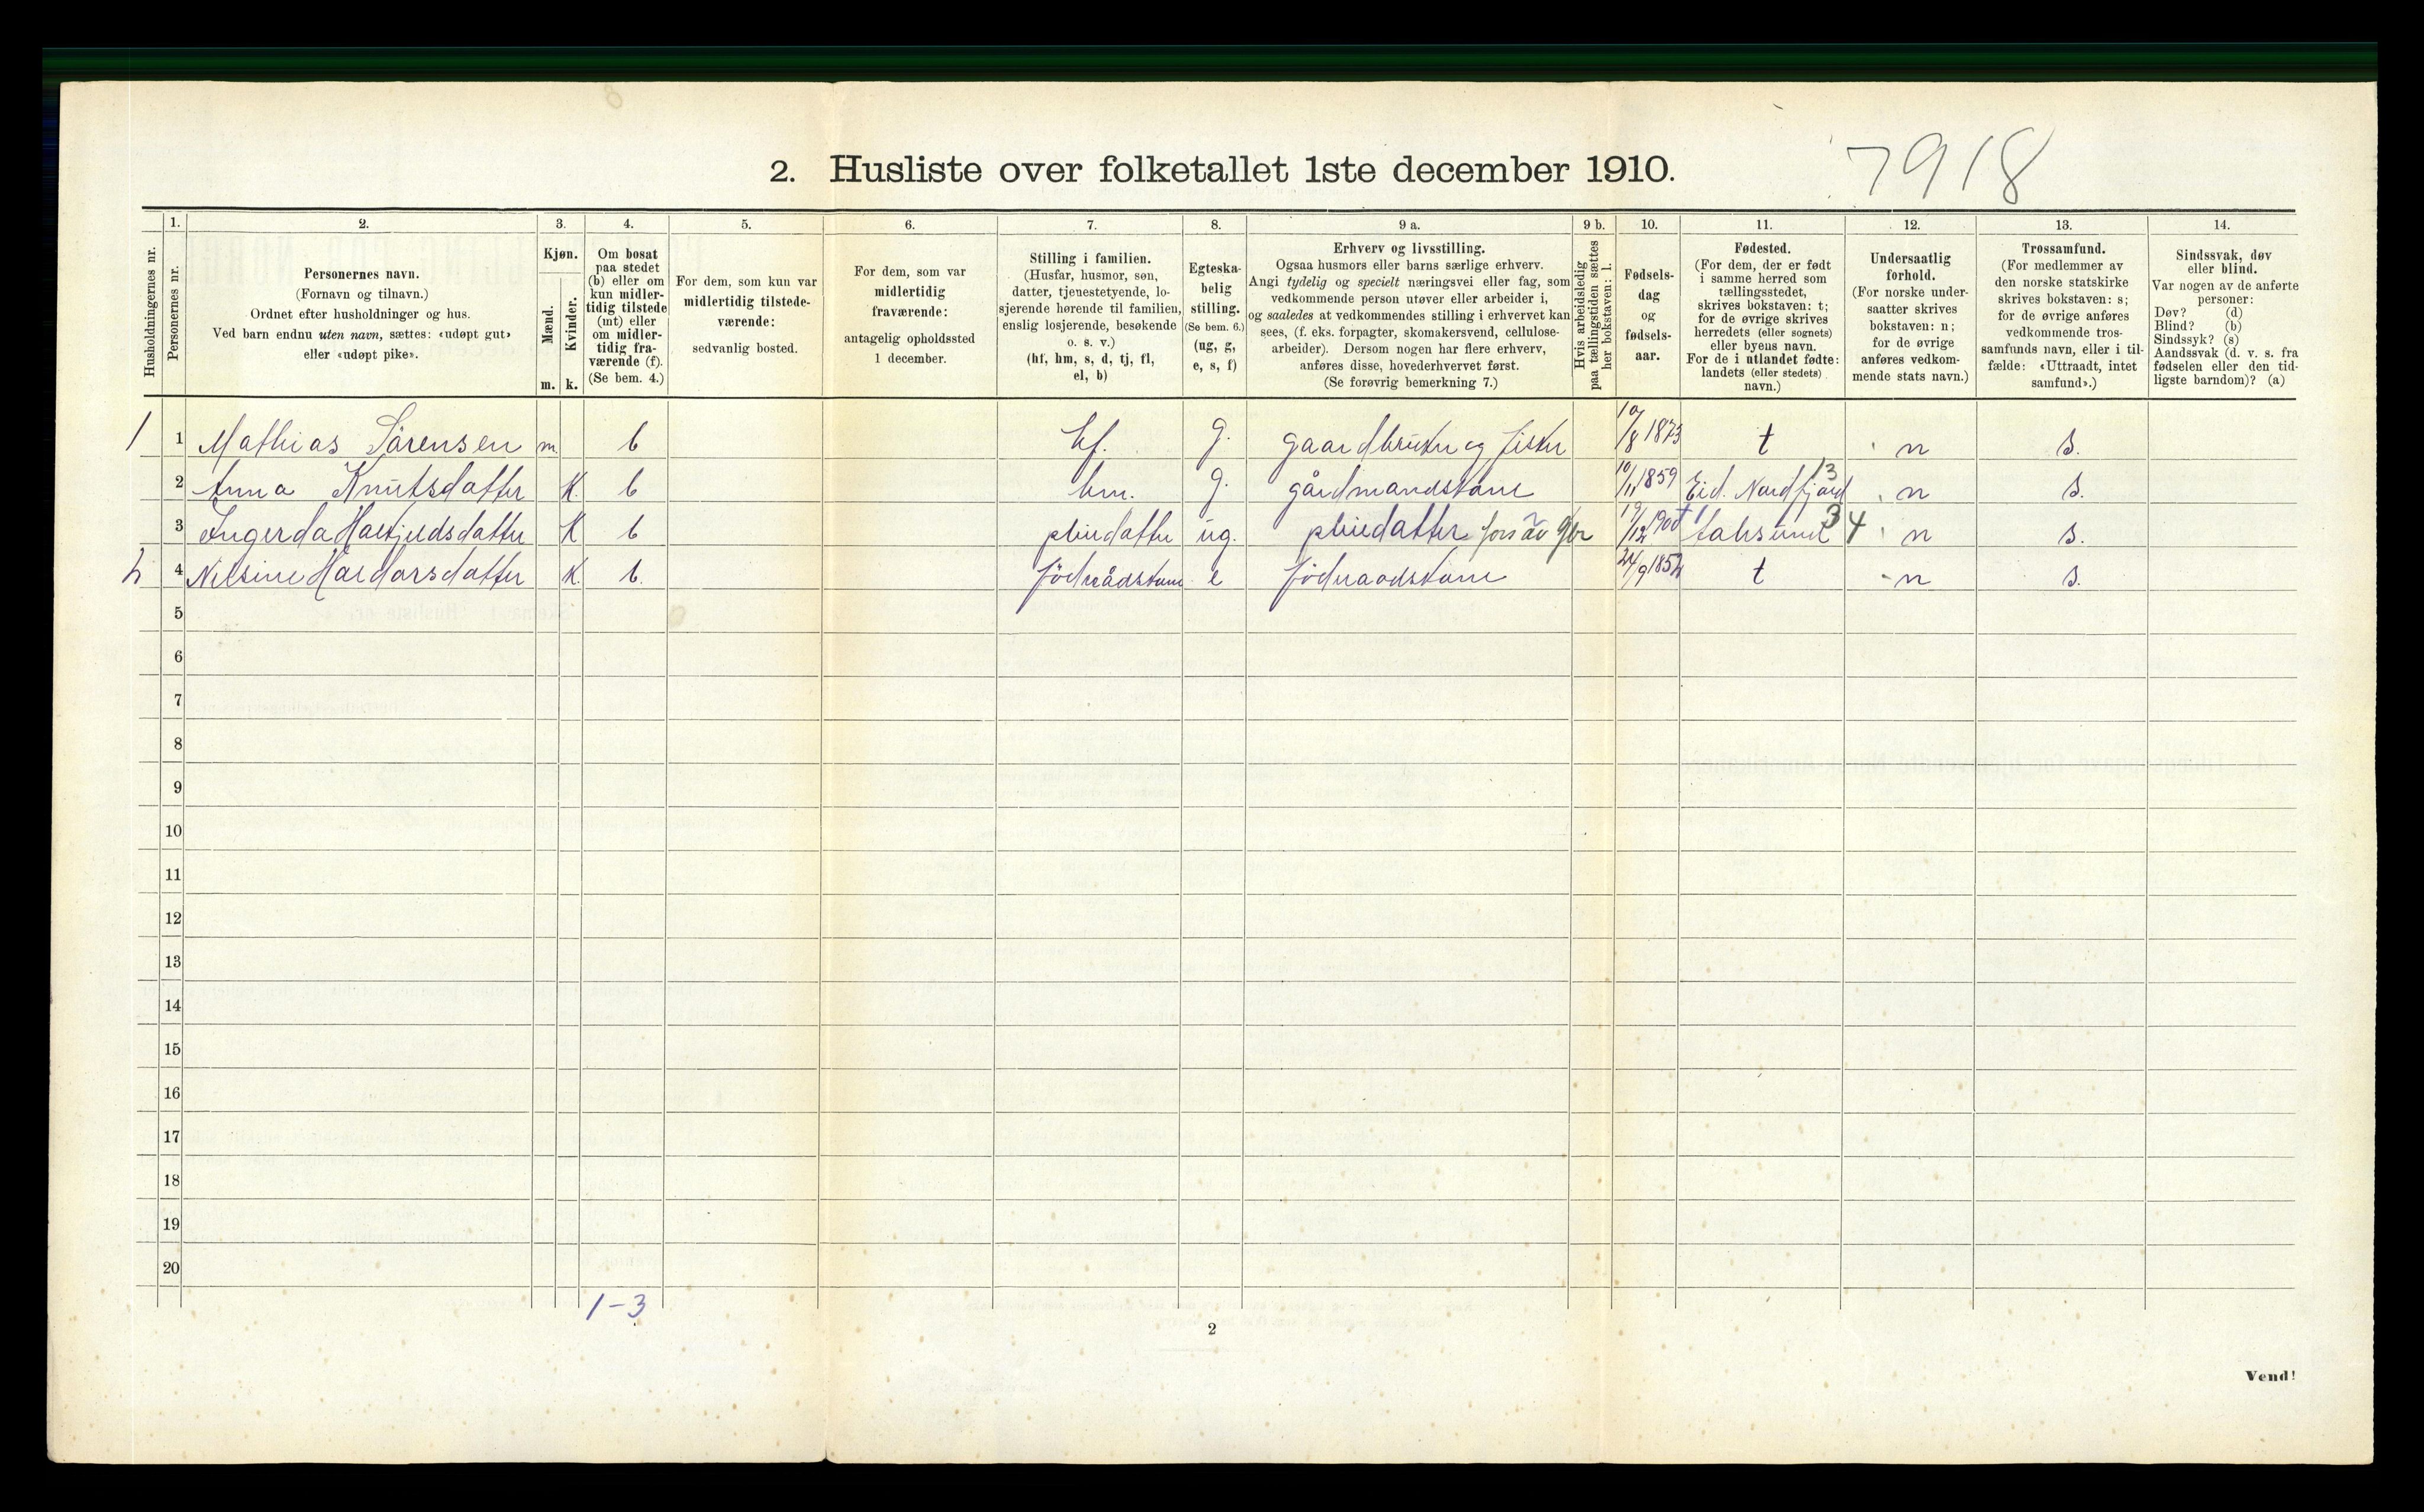 7918
2. Husliste over folketallet 1ste december 1910.
1. 2. 3. 4. 5. 6. 7. 8. 9 a. 9 b. 10. 11. 12. 13. 14.
Husholdningernes nr.
Personernes nr.
Personernes navn.
(Fornavn og tilnavn.)
Ordnet efter husholdninger og hus.
Ved barn endnu uten navn, sættes: «udøpt gut»
eller «udøpt pike».
Kjøn.
Mænd.
Kvinder.
m. k.
Om bosat
paa stedet
(b) eller om
kun midler-
tidig tilstede
(mt) eller
om midler-
tidig fra-
værende (f).
(Se bem. 4.)
For dem, som kun var
midlertidig tilstede-
værende:
sedvanlig bosted.
For dem, som var
midlertidig
fraværende:
antagelig opholdssted
1 december.
Stilling i familien.
(Husfar, husmor, søn,
datter, tjenestetyende, lo-
sjerende hørende til familien,
enslig losjerende, besøkende
o. s. v.)
(hf, hm, s, d, tj, fl,
el, b)
Egteska-
belig
stilling.
(Se bem. 6.)
(ug, g,
e, s, f)
Erhverv og livsstilling.
Ogsaa husmors eller barns særlige erhverv.
Angi tydelig og specielt næringsvei eller fag, som
vedkommende person utøver eller arbeider i,
og saaledes at vedkommendes stilling i erhvervet kan
sees, (f. eks. forpagter, skomakersvend, cellulose-
arbeider). Dersom nogen har flere erhverv,
anføres disse, hovederhvervet først.
(Se forøvrig bemerkning 7.)
Hvis arbeidsledig
paa tællingstiden sættes
her bokstaven: l.
Fødsels-
dag
og
fødsels-
aar.
Fødested.
(For dem, der er født
i samme herred som
tællingsstedet,
skrives bokstaven: t;
for de øvrige skrives
herredets (eller sognets)
eller byens navn.
For de i utlandet fødte:
landets (eller stedets)
navn.)
Undersaatlig
forhold.
(For norske under-
saatter skrives
bokstaven: n;
for de øvrige
anføres vedkom-
mende stats navn.)
Trossamfund.
(For medlemmer av
den norske statskirke
skrives bokstaven: s;
for de øvrige anføres
vedkommende tros-
samfunds navn, eller i til-
fælde: «Uttraadt, intet
samfund».)
Sindssvak, døv
eller blind.
Var nogen av de anførte
personer:
Døv? (d)
Blind? (b)
Sindssyk? (s)
Aandssvak (d. v. s. fra
fødselen eller den tid-
ligste barndom)? (a)
1 1 Mathias Sørensen m. b hf. g. gaardbruker og fisker 10/8 1873 t n s.
2 Anna Knutsdatter K. b hm. g. gårdmandskone 10/11 1859 Eid. Nordfjord 13 n s.
3 K b pleiedatter ug. pleiedatter fors av gbr 19/12 34 n s.
2 4 Nilsine K. b. fødrådskone e føderaadskone 24/9 1852 t n s.
5
6
7
8
9
10
11
12
13
14
15
16
17
18
19
20
1-3
2
Vend!